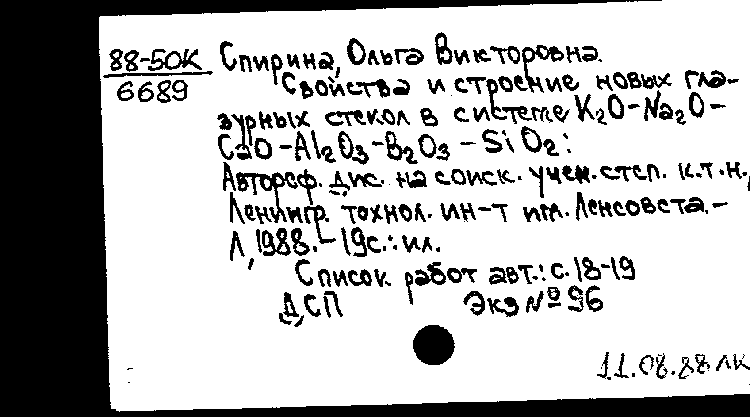 88-50К
6689
Спирина, Ольга Викторовна.
Свойства и строение новых гла-
зурных стекол в системе K₂O-Na₂O-
CaO-Al₂O₃-B₂O₃-SiO₂:
Автореф. дис. на соиск. учен. степ. к.т.н.,
Ленингр. технол. ин-т им. Ленсовета.-
Л, 1988.-19с.:ил.
Список работ авт.: с.18-19
ДСП Экз № 96
11.08.88 ЛК